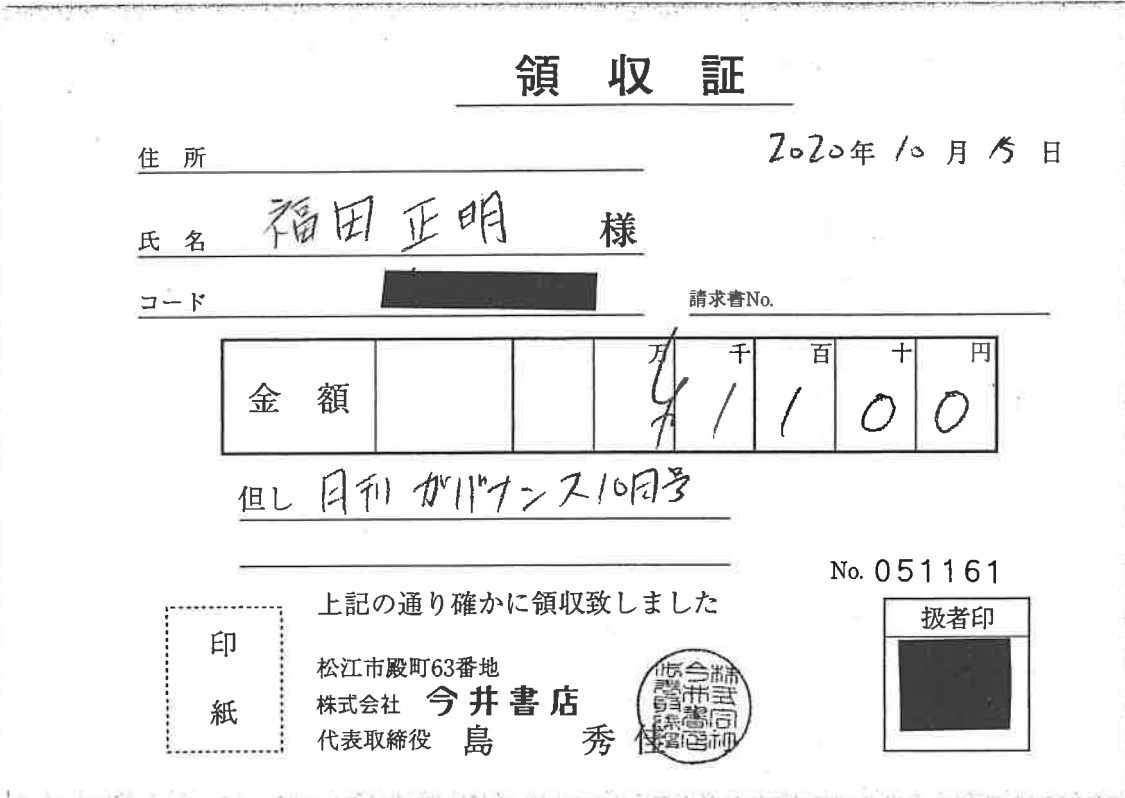 領収証
2020年10月15日
住所
氏名 福田 正明 様
コード
請求書No.
金額 万千百十円
1100
但し 月刊 ガバナンス10月号
No. 051161
上記の通り確かに領収致しました
扱者印
印紙
松江市殿町63番地
株式会社 今井書店
代表取締役 島 秀佳